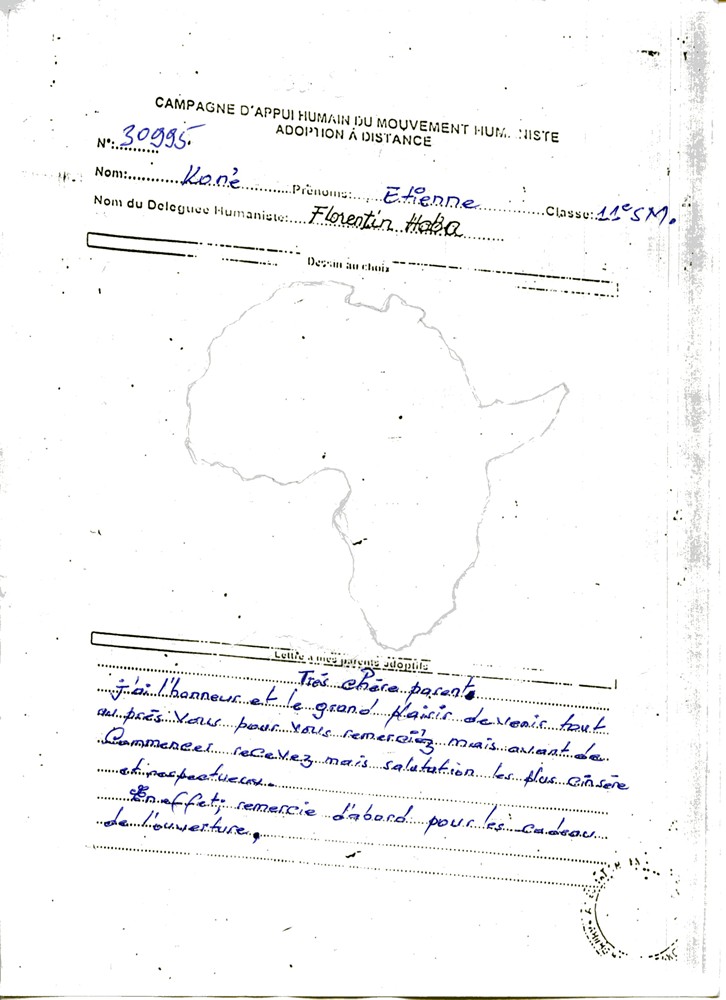 CAMPAGNE D'APPUI HUMAIN DU MOUVEMENT HUM. NISTE
ADOPTION À DISTANCE
N°:30995.
Nom: Koné Prénoms: Etienne Classe: 11e SM.
Nom du Deleguee Humaniste: Florentin Haba
Dessin au choix
Lettre à mes parents adoptifs
Trés chère parent,
j'ai l'hanneur et le grand plaisir de venir tout
au prés vous pour vous remerciez mais avant de
Commencer recevez mais salutation les plus cinsère
et respectueux.
En effet; remercie d'abord pour les cadeau
de l'ouverture,